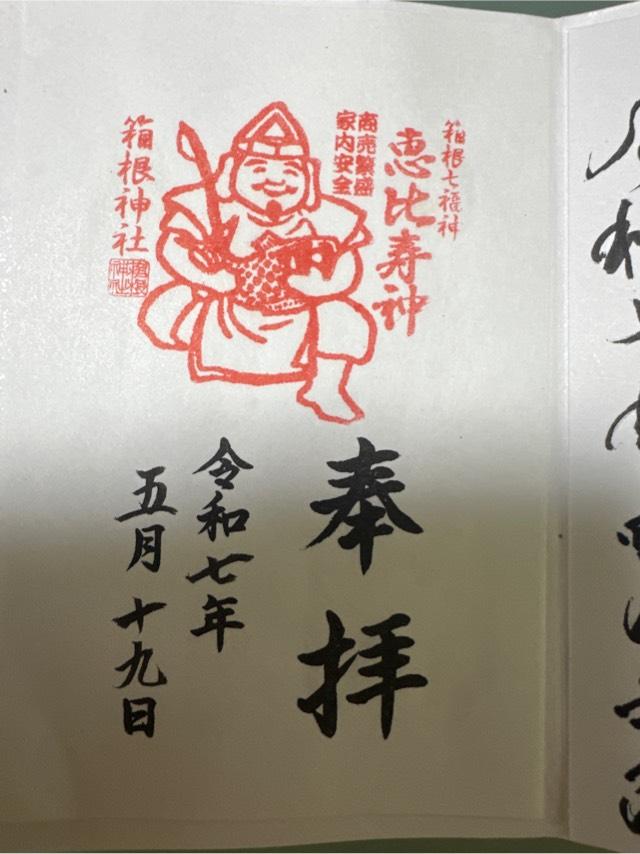 箱根七福神
恵比寿神
商売繁盛
家内安全
箱根神社
奉拝
令和七年
五月十九日